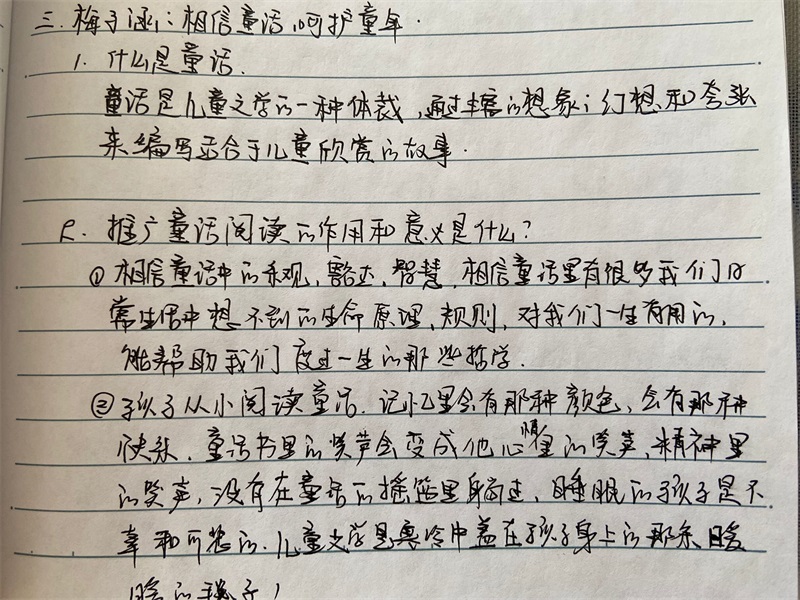 三.梅子涵:相信童话,呵护童年.
1.什么是童话.
童话是儿童文学的一种体裁,通过丰富的想象、幻想和夸张
来编写适合于儿童欣赏的故事.
2.推广童话阅读的作用和意义是什么?
①相信童话中的乐观,豁达,智慧,相信童话里有很多我们日
常生活中想不到的生命原理、规则,对我们一生有用的,
能帮助我们度过一生的那些哲学.
②孩子从小阅读童话.记忆里会有那种颜色,会有那种
快乐.童话书里的笑声会变成他心情里的笑声,精神里
的笑声,没有在童话的摇篮里躺过、睡眠的孩子是不
幸和可悲的.儿童文学是寒冷中盖在孩子身上的那条暖
暖的毯子!